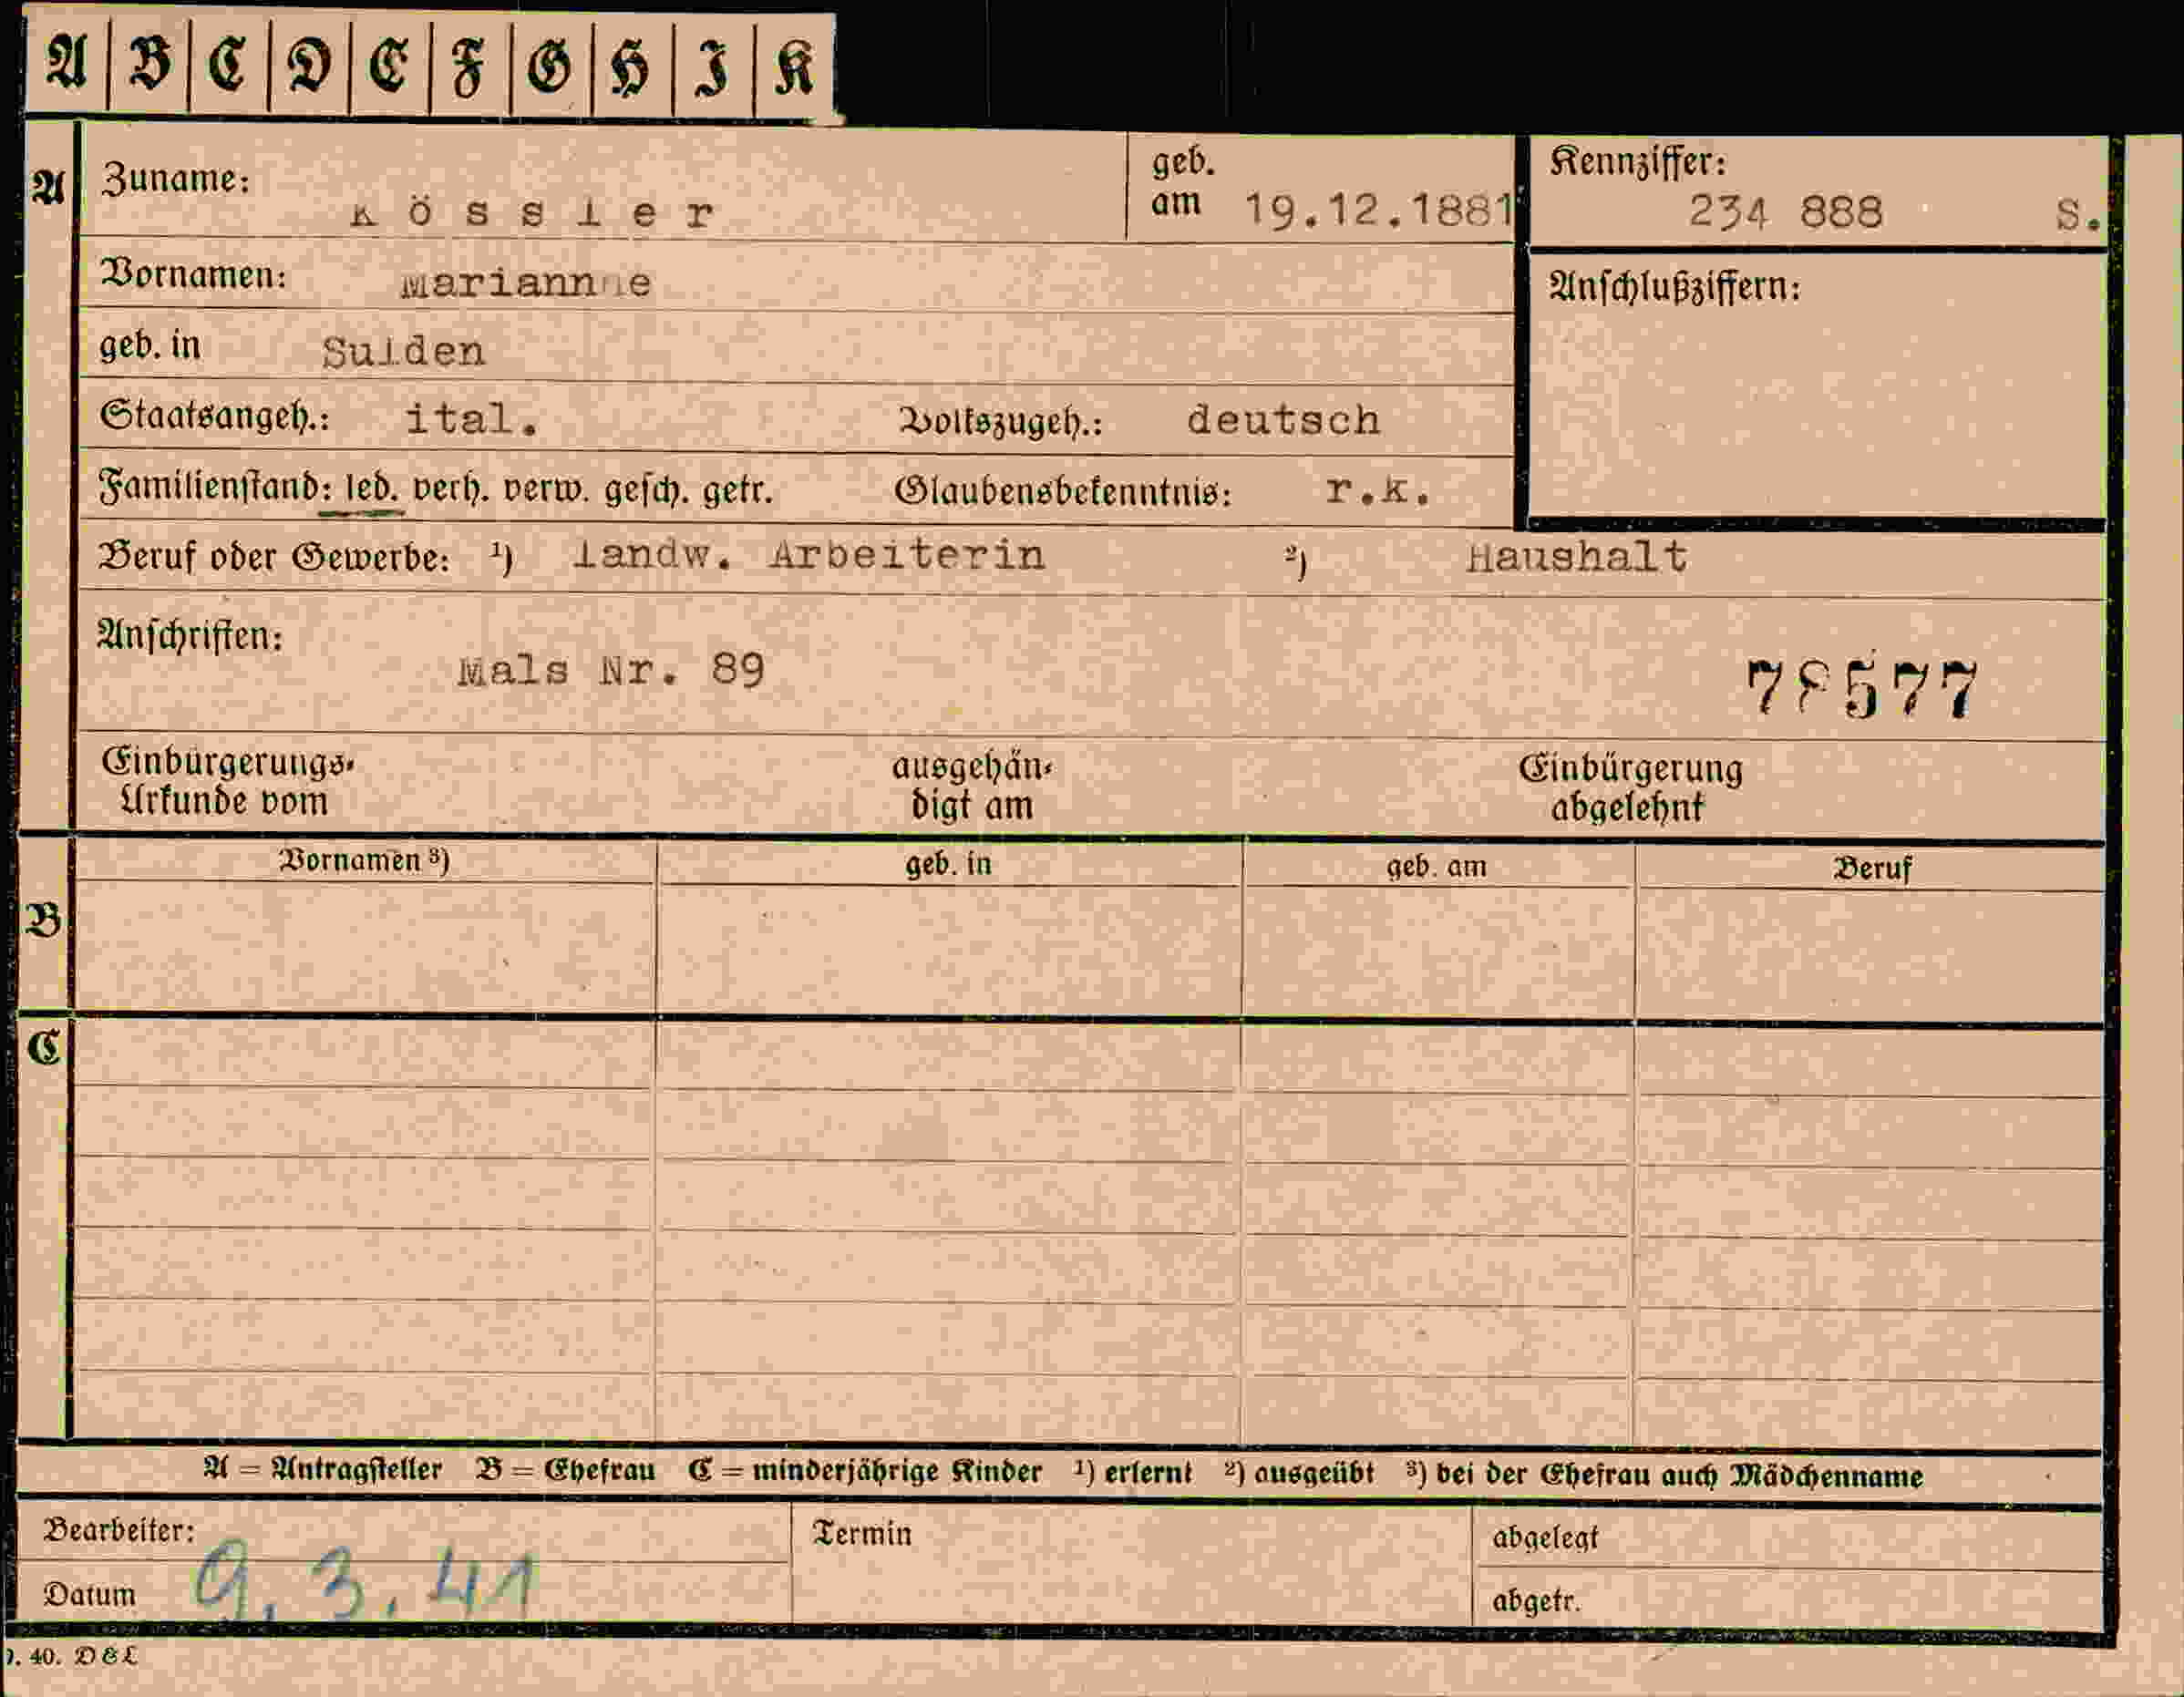 A B C D E F G H I K
A Zuname: K ö s s l e r geb. am 19.12.1881 Kennziffer: 234 888 S.
Vornamen: Mariannne Anschlußziffern:
geb. in Sulden
Staatsangeh.: ital. Volkszugeh.: deutsch
Familienstand: led. verh. verw. gesch. getr. Glaubensbekenntnis: r.k.
Beruf oder Gewerbe: ¹) landw. Arbeiterin ²) Haushalt
Anschriften:
Mals Nr. 89 78577
Einbürgerungs-
Urkunde vom
ausgehän-
digt am
Einbürgerung
abgelehnt
Vornamen ³) geb. in geb. am Beruf
B
C
A = Antragsteller B = Ehefrau C = minderjährige Kinder ¹) erlernt ²) ausgeübt ³) bei der Ehefrau auch Mädchenname
Bearbeiter: Termin abgelegt
Datum 9.3.41 abgetr.
40. D & L